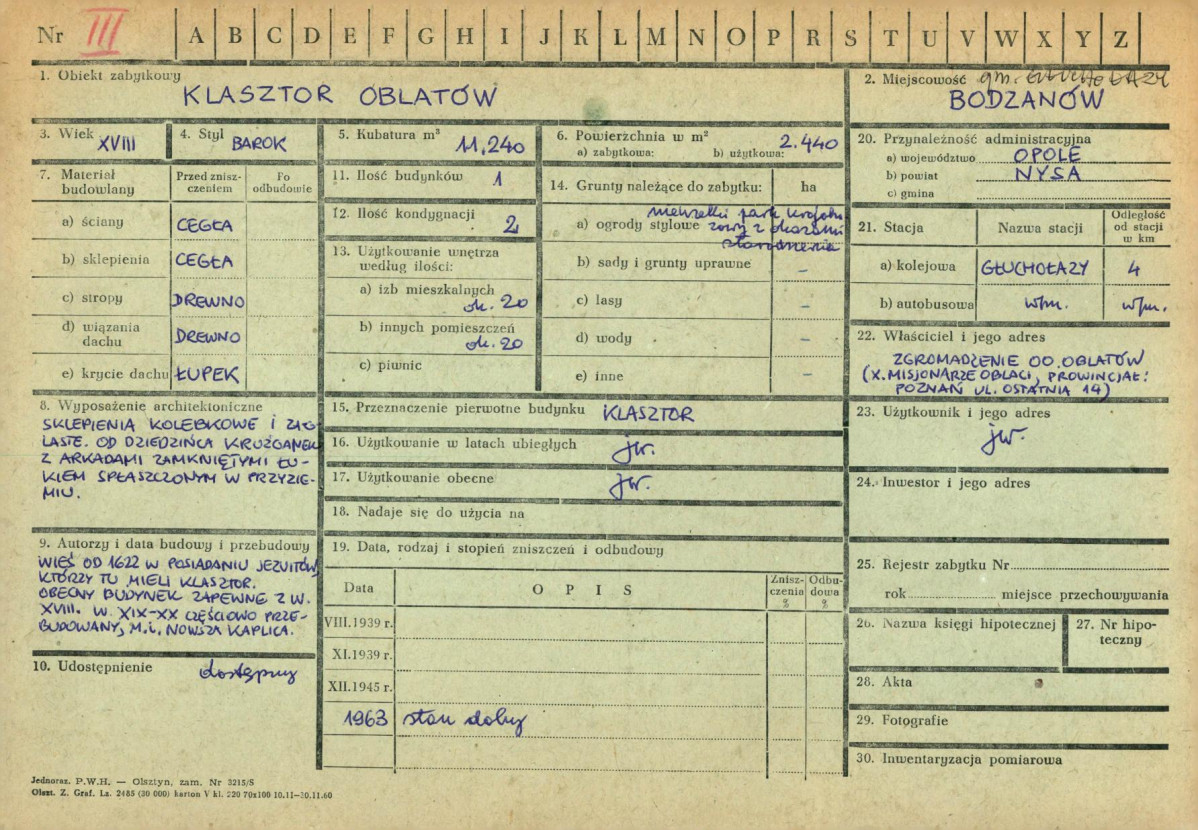 Nr III A B C D E F G H I J K L M N O P R S T U V W X Y Z
1. Obiekt zabytkowy
KLASZTOR OBLATÓW
2. Miejscowość gm. GŁUCHOŁAZY
BODZANÓW
3. Wiek XVIII
4. Styl BAROK
5. Kubatura m³ 11.240
6. Powierzchnia w m²
a) zabytkowa: b) użytkowa: 2.440
7. Materiał budowlany
Przed zniszczeniem
Po odbudowie
a) ściany CEGŁA
b) sklepienia CEGŁA
c) stropy DREWNO
d) wiązania dachu DREWNO
e) krycie dachu ŁUPEK
8. Wyposażenie architektoniczne
SKLEPIENIA KOLEBKOWE I ŻAG-
LASTE. OD DZIEDZIŃCA KRUŻGANEK
Z ARKADAMI ZAMKNIĘTYMI ŁU-
KIEM SPŁASZCZONYM W PRZYZIE-
MIU.
9. Autorzy i data budowy i przebudowy
WIEŚ OD 1622 W POSIADANIU JEZUITÓW,
KTÓRZY TU MIELI KLASZTOR.
OBECNY BUDYNEK ZAPEWNE Z W.
XVIII. W XIX-XX CZĘŚCIOWO PRZE-
BUDOWANY, M.I. NOWSZA KAPLICA.
10. Udostępnienie dostępny
11. Ilość budynków 1
12. Ilość kondygnacji 2
13. Użytkowanie wnętrza
według ilości:
a) izb mieszkalnych
ok. 20
b) innych pomieszczeń
ok. 20
c) piwnic
14. Grunty należące do zabytku: ha
a) ogrody stylowe niewielki park krajobra
zowy z okazami
starodrzewia
b) sady i grunty uprawne –
c) lasy –
d) wody –
e) inne –
15. Przeznaczenie pierwotne budynku KLASZTOR
16. Użytkowanie w latach ubiegłych jw.
17. Użytkowanie obecne jw.
18. Nadaje się do użycia na
19. Data, rodzaj i stopień zniszczeń i odbudowy
Data
OPIS
Zniszczenia %
Odbudowa %
VIII.1939 r.
XI.1939 r.
XII.1945 r.
1963 stan dobry
20. Przynależność administracyjna
a) województwo OPOLE
b) powiat NYSA
c) gmina
21. Stacja
Nazwa stacji
Odległość od stacji w km
a) kolejowa GŁUCHOŁAZY 4
b) autobusowa w/m. w/m.
22. Właściciel i jego adres
ZGROMADZENIE OO. OBLATÓW
(X. MISJONARZE OBLACI, PROWINCJAŁ:
POZNAŃ UL. OSTATNIA 14)
23. Użytkownik i jego adres
jw.
24. Inwestor i jego adres
25. Rejestr zabytku Nr
rok miejsce przechowywania
26. Nazwa księgi hipotecznej
27. Nr hipoteczny
28. Akta
29. Fotografie
30. Inwentaryzacja pomiarowa
Jednoraz. P.W.H. — Olsztyn, zam. Nr 3215/S
Olszt. Z. Graf. Lz. 2485 (30 000) karton V kl. 220 70x100 10.11—30.11.60